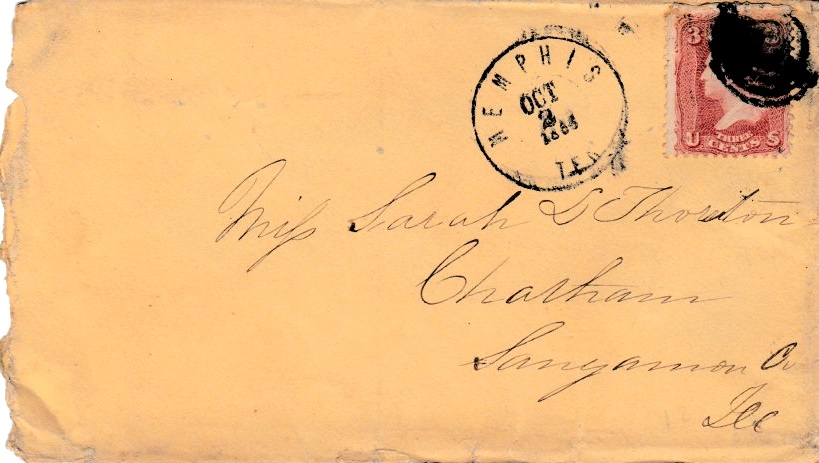 MEMPHIS
OCT
2
1864
TEN
3
U THREE CENTS S
Miss Sarah L Thornton
Chatham
Sangamon Co
Ill